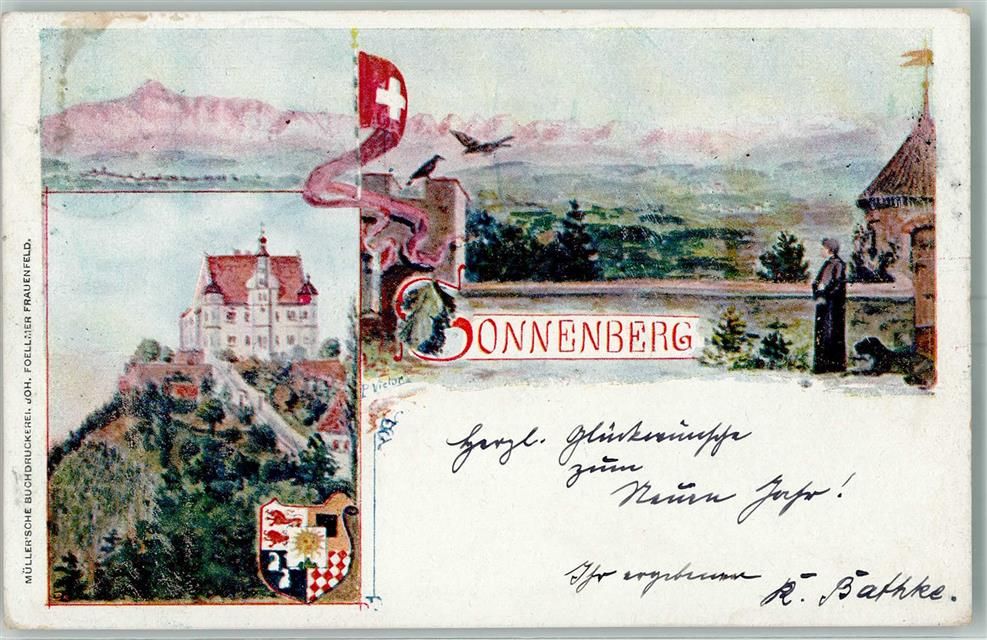 MÜLLER'SCHE BUCHDRUCKEREI, JOH. FOELLMER FRAUENFELD.
SONNENBERG
P. Victor
Herzl. Glückwünsche
zum
Neuen Jahr!
Ihr ergebener
K. Bathke.